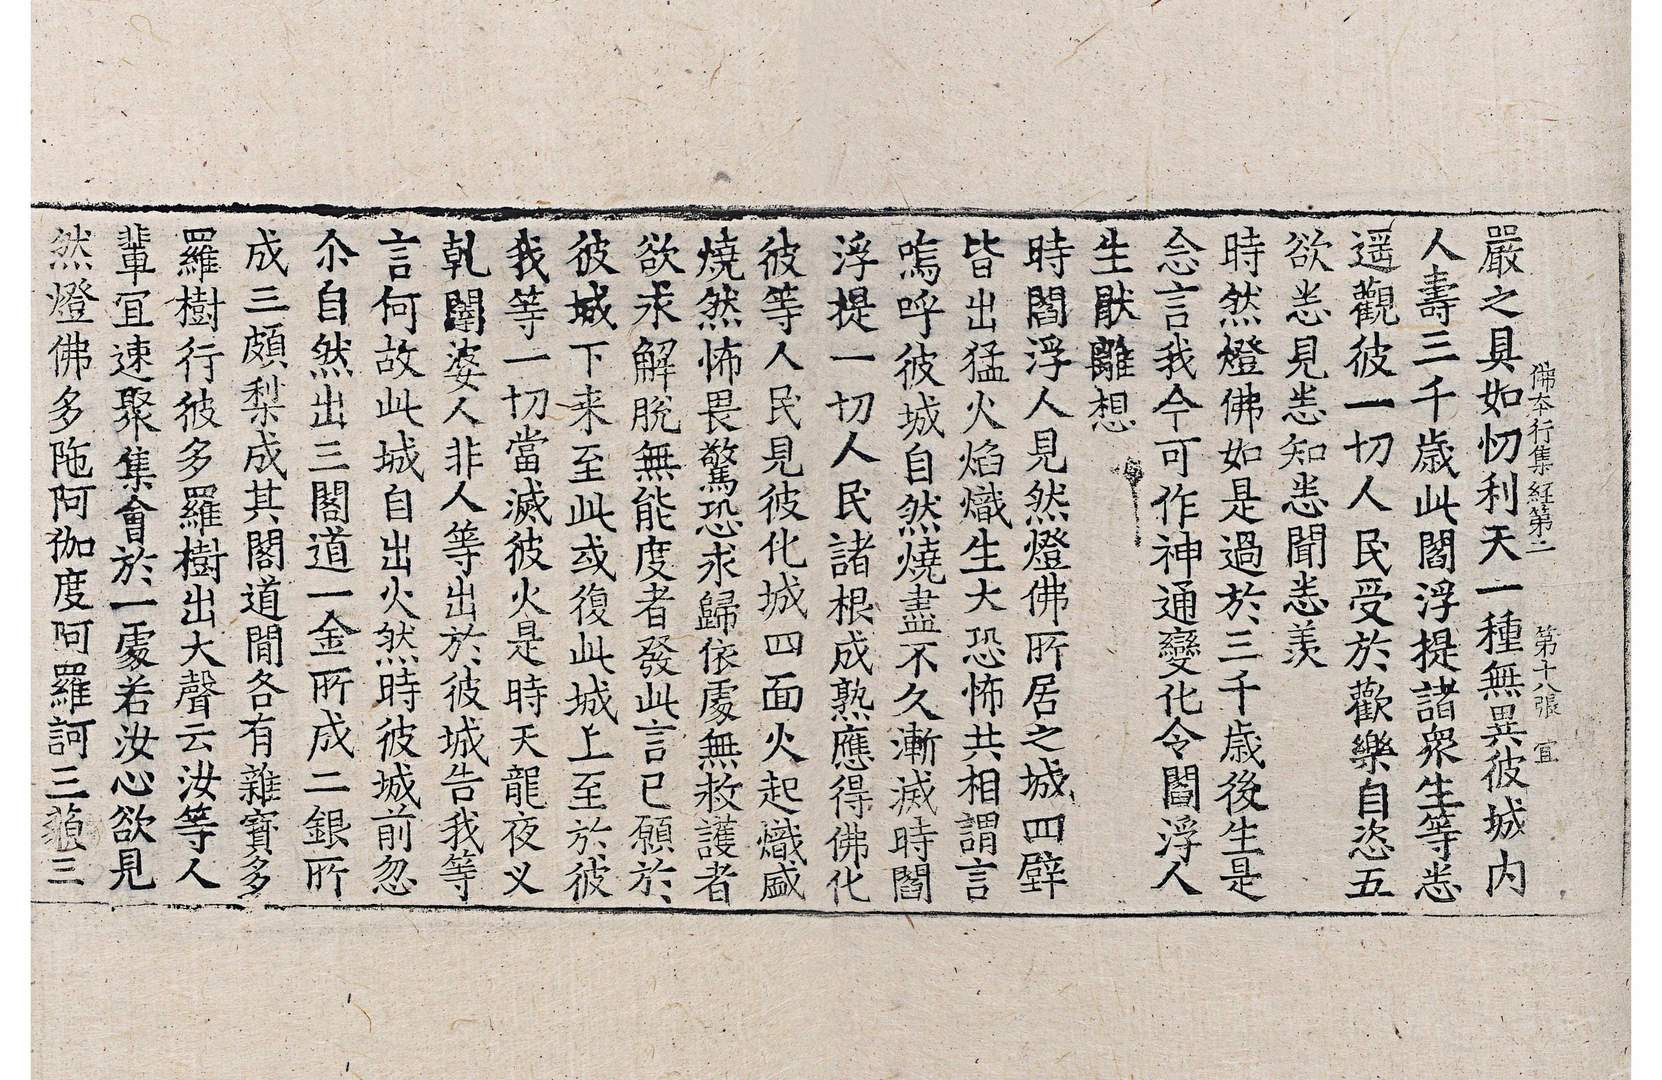 佛本行集経第二　第十八張　宜
嚴之具如忉利天一種無異彼城内
人壽三千歳此閻浮提諸衆生等悉
遥觀彼一切人民受於歡樂自恣五
欲悉見悉知悉聞悉羡
時然燈佛如是過於三千歳後生是
念言我今可作神通變化令閻浮人
生猒離想
時閻浮人見然燈佛所居之城四壁
皆出猛火焰熾生大恐怖共相謂言
嗚呼彼城自然燒盡不久漸滅時閻
浮提一切人民諸根成熟應得佛化
彼等人民見彼化城四面火起熾盛
燒然怖畏驚恐求歸依處無救護者
欲求解脫無能度者發此言已願於
彼城下来至此或復此城上至於彼
我等一切當滅彼火是時天龍夜叉
乹闥婆人非人等出於彼城告我等
言何故此城自出火然時彼城前忽
尒自然出三閣道一金所成二銀所
成三頗梨成其閣道間各有雜寳多
羅樹行彼多羅樹出大聲云汝等人
輩冝速聚集會於一處若汝心欲見
然燈佛多陁阿伽度阿羅訶三藐三